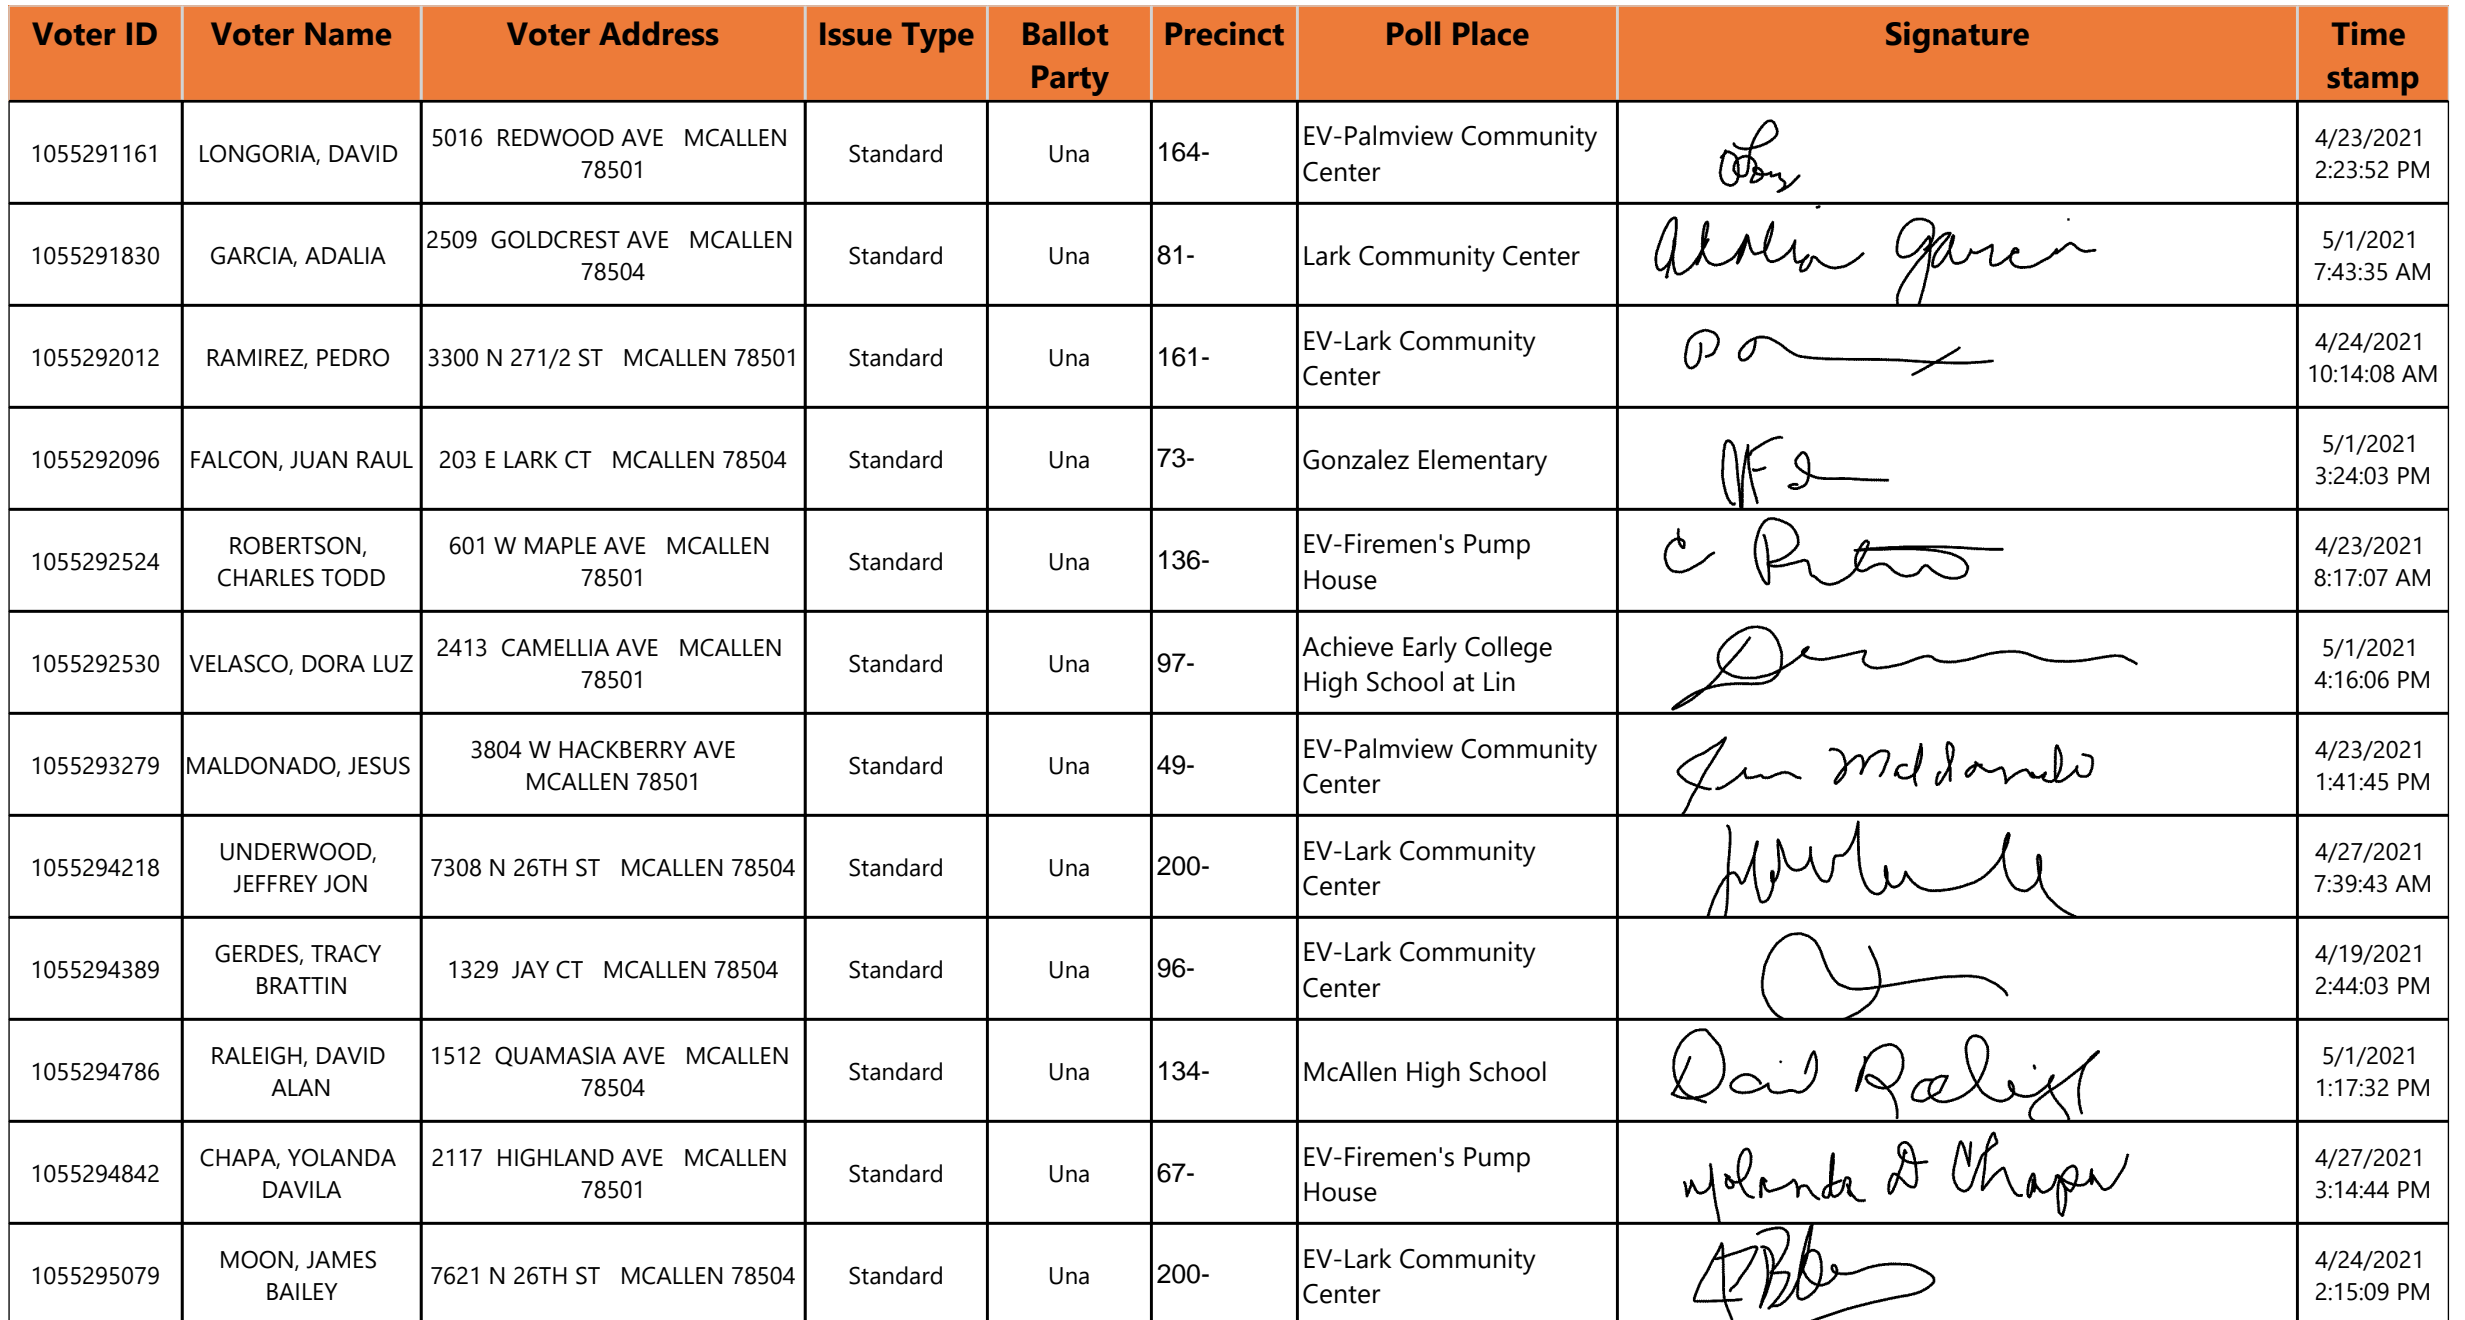 Voter ID Voter Name Voter Address Issue Type Ballot Party Precinct Poll Place Signature Time stamp
1055291161 LONGORIA, DAVID 5016 REDWOOD AVE MCALLEN 78501 Standard Una 164- EV-Palmview Community Center 4/23/2021 2:23:52 PM
1055291830 GARCIA, ADALIA 2509 GOLDCREST AVE MCALLEN 78504 Standard Una 81- Lark Community Center Adalia Garcia 5/1/2021 7:43:35 AM
1055292012 RAMIREZ, PEDRO 3300 N 271/2 ST MCALLEN 78501 Standard Una 161- EV-Lark Community Center 4/24/2021 10:14:08 AM
1055292096 FALCON, JUAN RAUL 203 E LARK CT MCALLEN 78504 Standard Una 73- Gonzalez Elementary 5/1/2021 3:24:03 PM
1055292524 ROBERTSON, CHARLES TODD 601 W MAPLE AVE MCALLEN 78501 Standard Una 136- EV-Firemen's Pump House 4/23/2021 8:17:07 AM
1055292530 VELASCO, DORA LUZ 2413 CAMELLIA AVE MCALLEN 78501 Standard Una 97- Achieve Early College High School at Lin 5/1/2021 4:16:06 PM
1055293279 MALDONADO, JESUS 3804 W HACKBERRY AVE MCALLEN 78501 Standard Una 49- EV-Palmview Community Center Maldonado 4/23/2021 1:41:45 PM
1055294218 UNDERWOOD, JEFFREY JON 7308 N 26TH ST MCALLEN 78504 Standard Una 200- EV-Lark Community Center 4/27/2021 7:39:43 AM
1055294389 GERDES, TRACY BRATTIN 1329 JAY CT MCALLEN 78504 Standard Una 96- EV-Lark Community Center 4/19/2021 2:44:03 PM
1055294786 RALEIGH, DAVID ALAN 1512 QUAMASIA AVE MCALLEN 78504 Standard Una 134- McAllen High School David Raleigh 5/1/2021 1:17:32 PM
1055294842 CHAPA, YOLANDA DAVILA 2117 HIGHLAND AVE MCALLEN 78501 Standard Una 67- EV-Firemen's Pump House Yolanda D Chapa 4/27/2021 3:14:44 PM
1055295079 MOON, JAMES BAILEY 7621 N 26TH ST MCALLEN 78504 Standard Una 200- EV-Lark Community Center 4/24/2021 2:15:09 PM